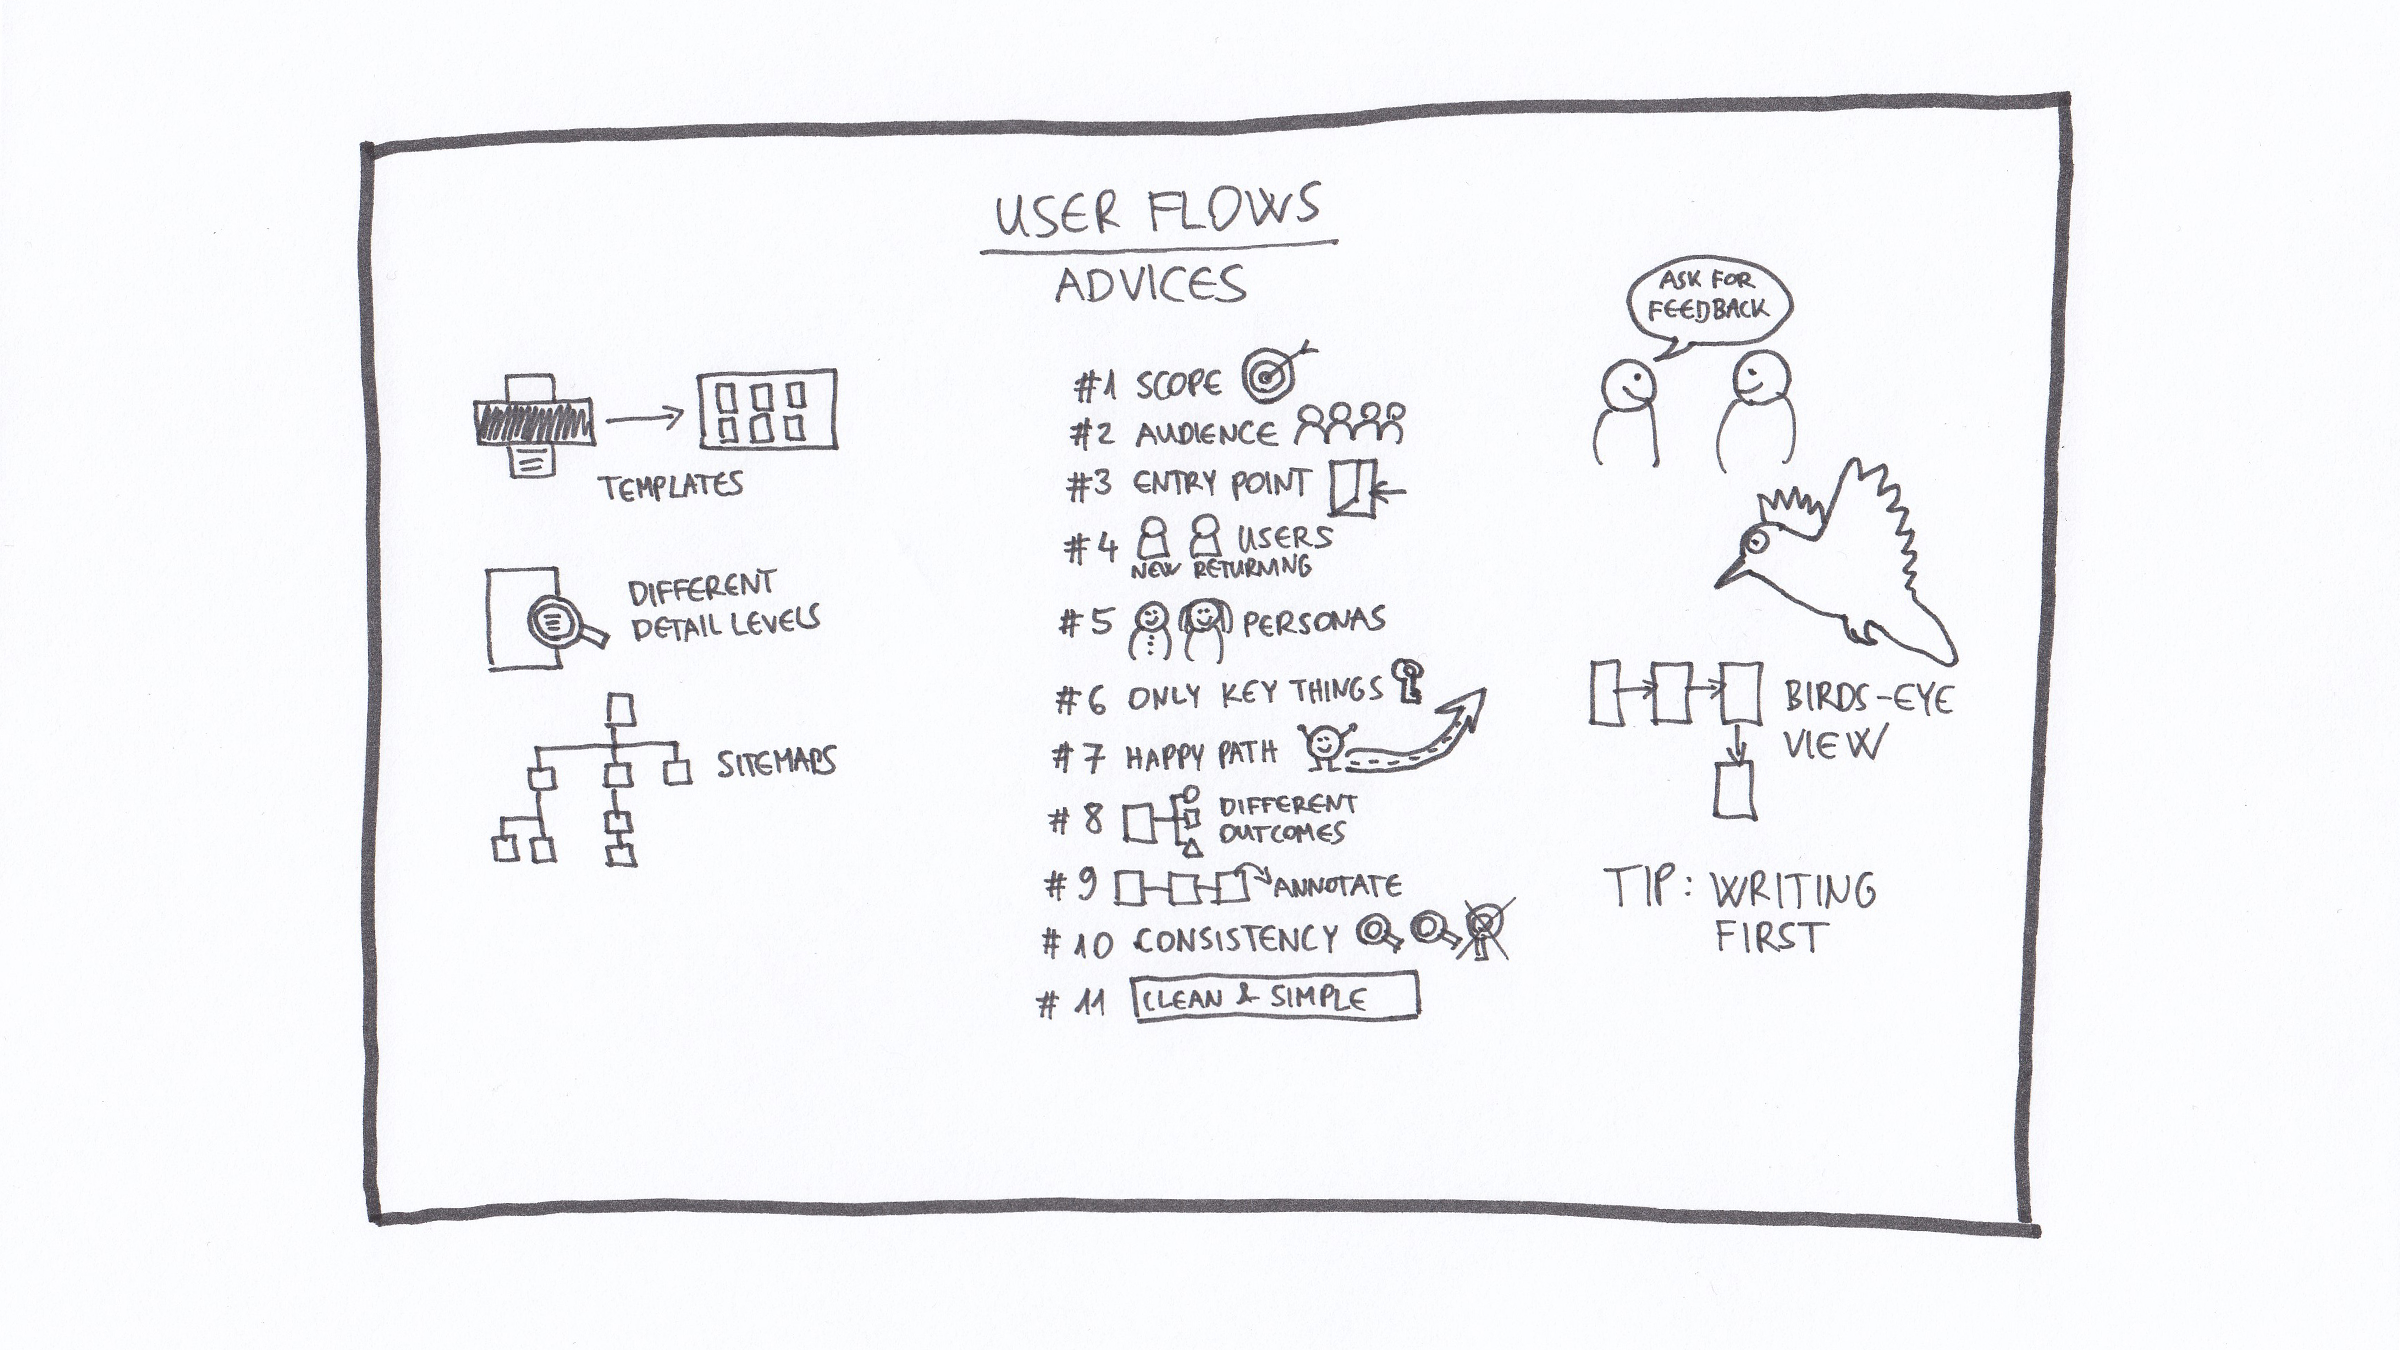 USER FLOWS
ADVICES
TEMPLATES
DIFFERENT
DETAIL LEVELS
SITEMAPS
#1 SCOPE
#2 AUDIENCE
#3 ENTRY POINT
#4 USERS
NEW RETURNING
#5 PERSONAS
#6 ONLY KEY THINGS
#7 HAPPY PATH
#8 DIFFERENT
OUTCOMES
#9 ANNOTATE
#10 CONSISTENCY
#11 CLEAN & SIMPLE
ASK FOR
FEEDBACK
BIRDS-EYE
VIEW
TIP: WRITING
FIRST